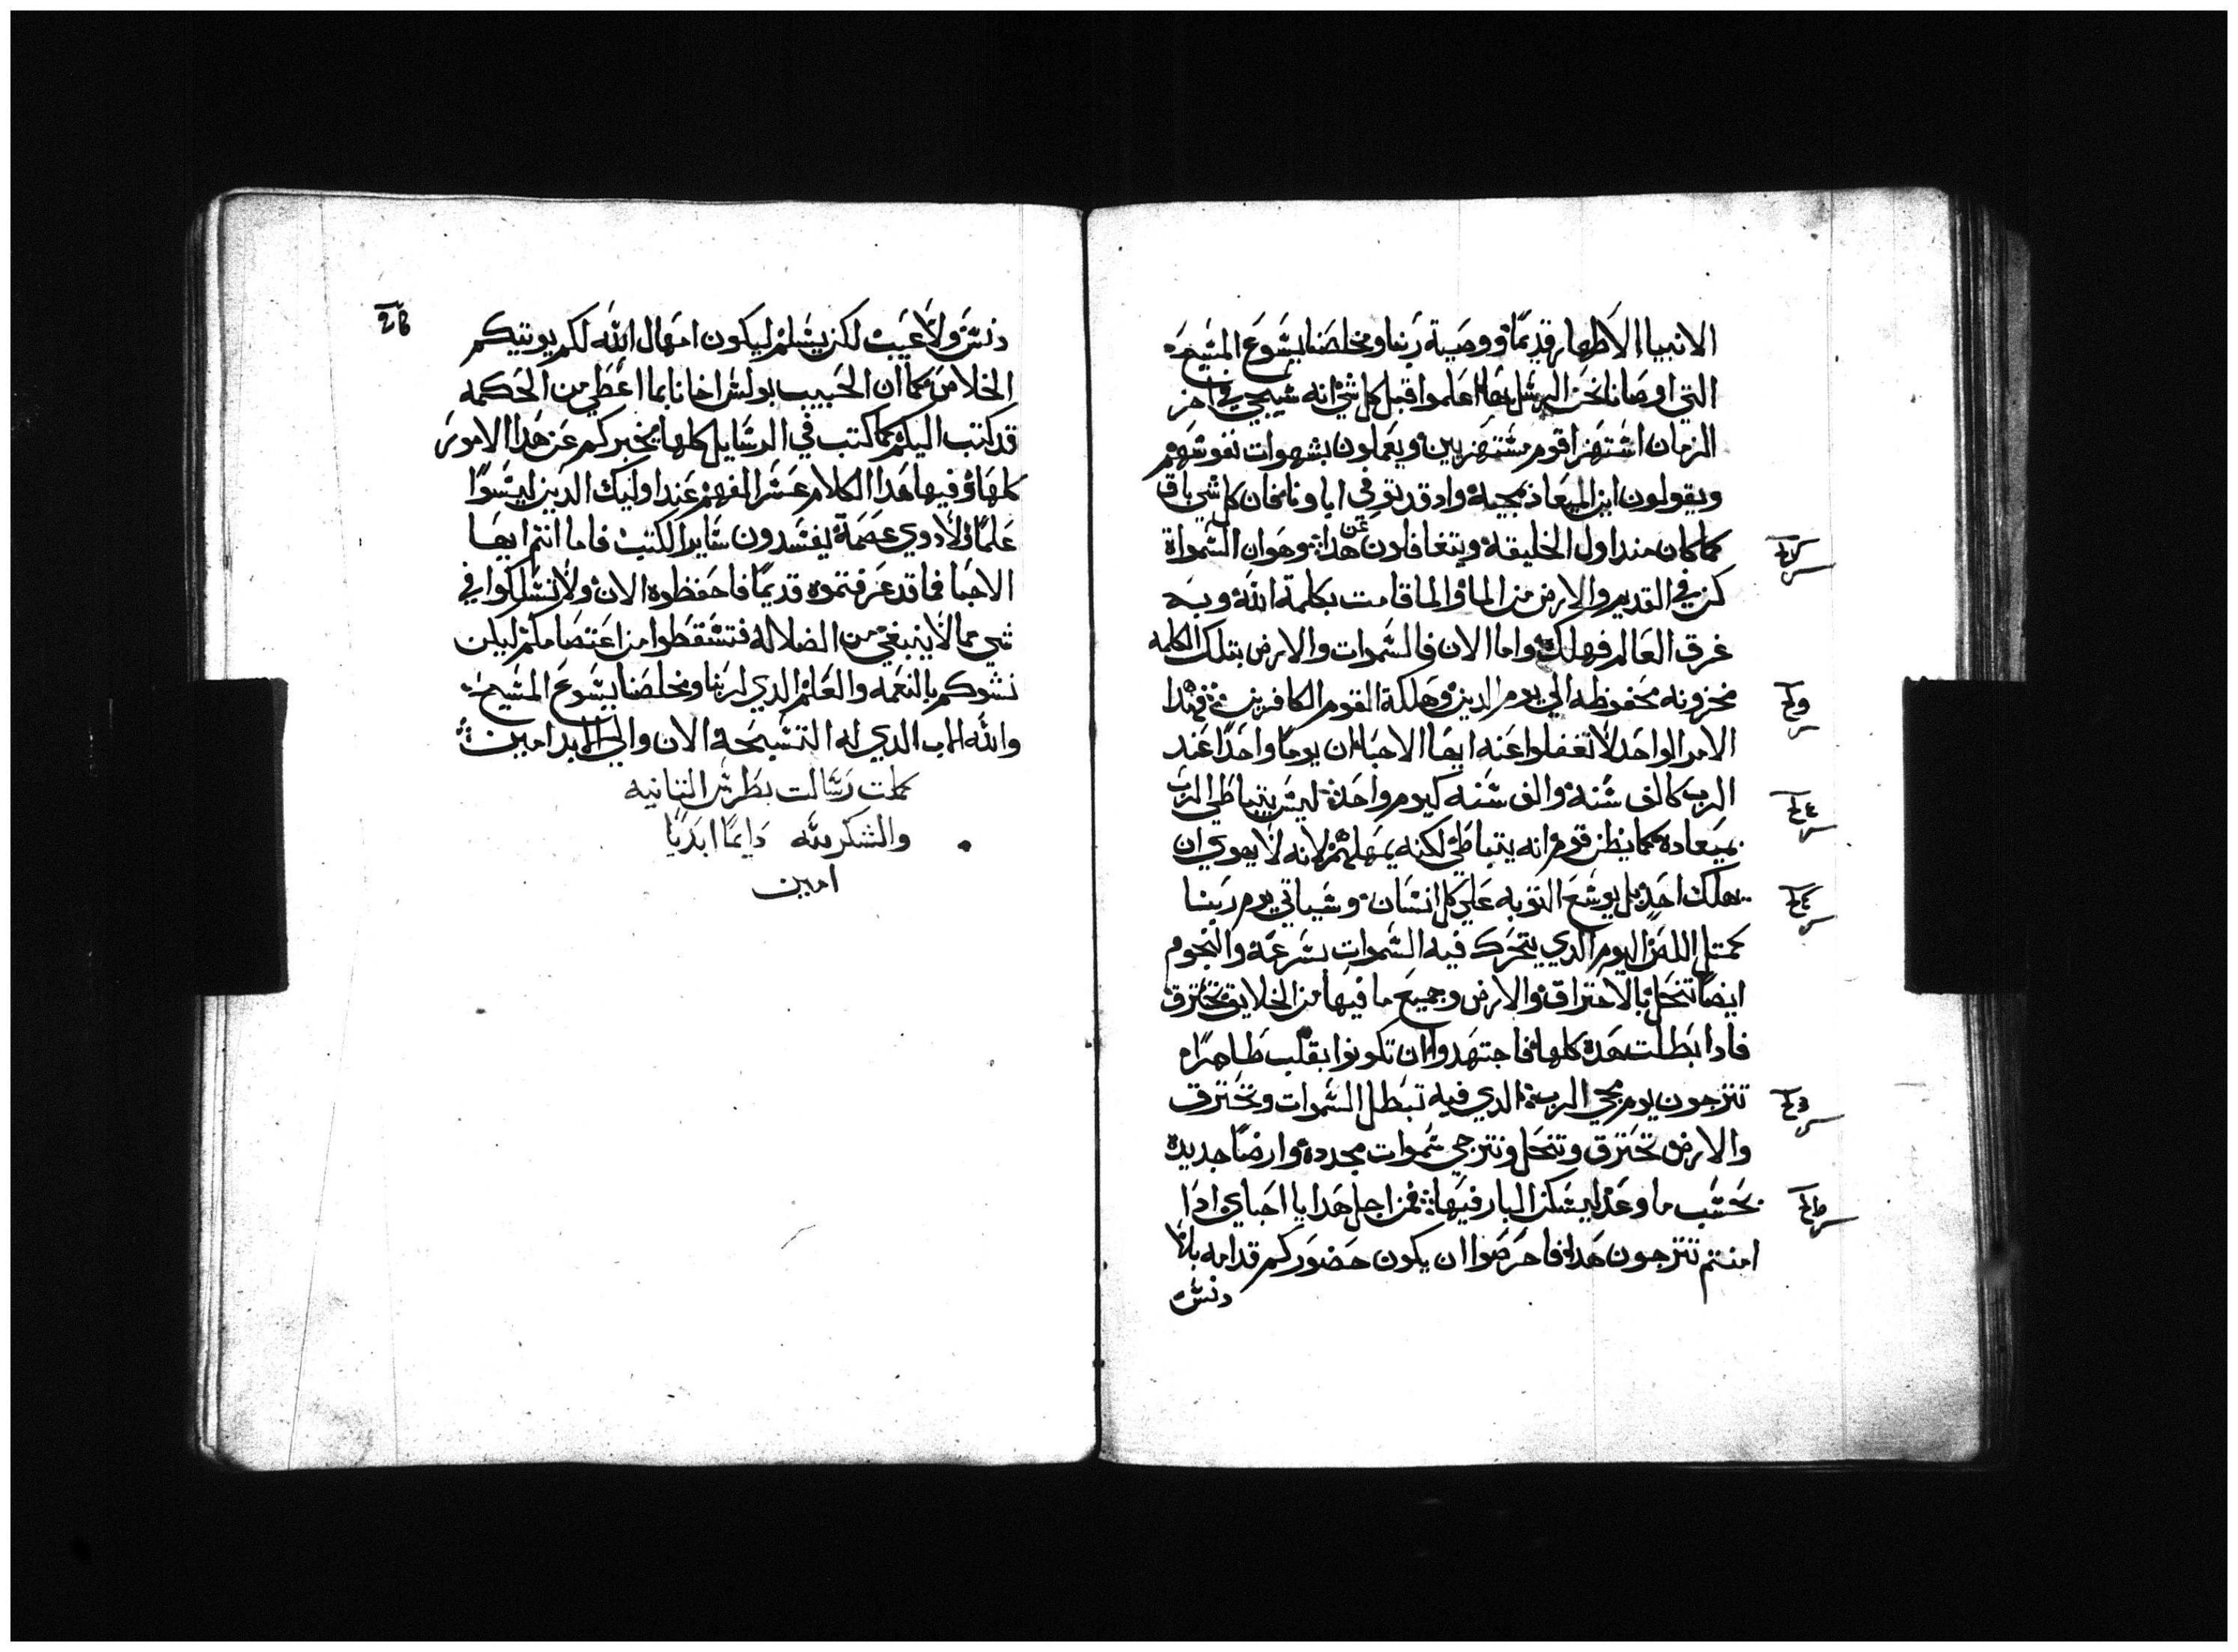 الانبيا الاطهار قديمًا ووصية ربنا ومخلصنا يسوع المسيح
التي اوصانا نحن الرسل بها اعلموا قبل كل شي انه سيجي في اخر
الزمان استهزا قوم مستهزيين ويعملون بشهوات نفوسهم
ويقولون اين الميعاد بمجيه واد قد توفي اباونا فان كل شي باق
كما كان مند اول الخليقه ويتغافلون عن هدا وهو ان السمواة
كن في القديم والارض من الما والما قامت بكلمة الله وبه
غرق العالم فهلك واما الان فالسموات والارض بتلك الكلمه
مخزونه محفوظه الي يوم الدين وهلكة القوم الكافرين فهدا
الامر الواحد لا تغفلوا عنه ايها الاحبا ان يومًا واحدًا عند
الرب كالف سنه والف سنه كيوم واحد ليس يتباطي الرب
بميعاده كما يظن قوم انه يتباطي لكنه يمهلهم لانه لا يهوي ان
يهلك احد بل يوسع التوبه علي كل انسان وسياتي يوم ربنا
كمتل اللص اليوم الدي يتحرك فيه السموات بسرعة والنجوم
ايضا تنحل بالاحتراق والارض وجميع ما فيها من الخلايق تحترق
فادا بطلت هده كلها فاجتهدوا ان تكونوا بقلب طاهرًا
تترجون يوم مجي الرب الدي فيه تبطل السموات وتحترق
والارض تحترق وتنحل ونترجي سموات مجدده وارضًا جديده
بحسب ما وعد ليسكن البار فيها فمن اجل هدا يا احباي ادا
امنتم تترجون هدا فاحرصوا ان يكون حضوركم قدامه بلا
دنس
دنس ولا عيب لكن بسلم ليكون امهال الله لكم يوتيكم
الخلاص كما ان الحبيب بولس اخانا بما اعطي من الحكمه
قد كتب اليكم كما كتب في الرسايل كلها يخبركم عن هدا الامور
كلها وفيها هدا الكلام عسر الفهم عند اوليك الدين ليسوا
علما ولا دوي عصمة يفسدون ساير الكتب فاما انتم ايها
الاحبا فما قد عرفتموه قديمًا فاحفظوه الان ولا تسلكوا في
شي مما لا ينبغي من الضلاله فتسقطوا من اعتصامكم ليكن
نشوكم بالنعمه والعلم الدي لربنا ومخلصنا يسوع المسيح
والله الاب الدي له التسبحه الان والي الابد امين
كملت رسالت بطرس التانيه
والشكر لله دايمًا ابديًا
امين